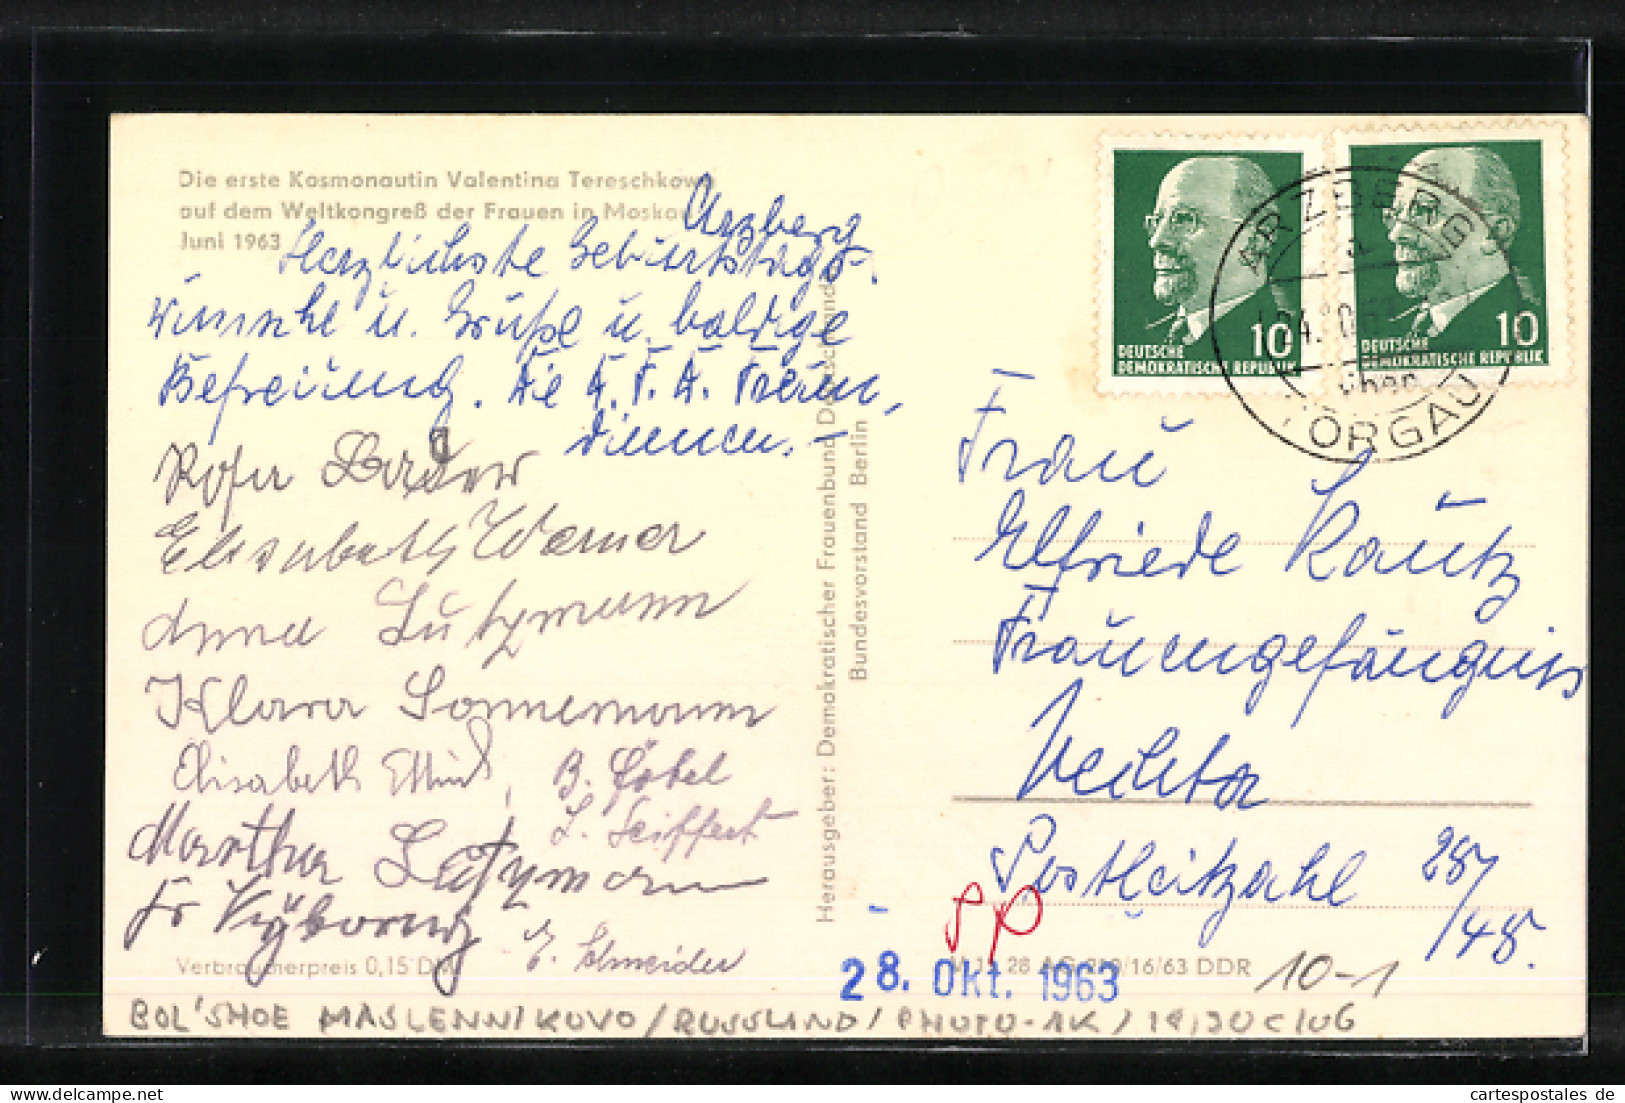 Die erste Kosmonautin Valentina Tereschkow
auf dem Weltkongreß der Frauen in Moskau
Juni 1963
Arzberg
Herzlichste Geburtstags-
wünsche u. Grüße u. baldige
Befreiung. Die Freun,
dinnen. —
Elisabeth Werner
Anna Lutzmann
Klara Sonnemann
Elisabeth
B. Göbel
L. Seiffert
Martha Lutzmann
Fr
E. Schneider
Verbraucherpreis 0,15 DM
Herausgeber: Demokratischer Frauenbund Deutschlands
Bundesvorstand Berlin
DEUTSCHE
DEMOKRATISCHE REPUBLIK
10
DEUTSCHE
DEMOKRATISCHE REPUBLIK
10
ARZBERG
TORGAU
Frau
Elfriede Kautz
Frauengefängnis
Vechta
Postleitzahl 285
/48.
28. Okt. 1963
28 AG 16/63 DDR
10-1
BOL'SHOE MASLENNIKOVO/RUSSLAND/PHOTO-AK/
www.cartespostales.de